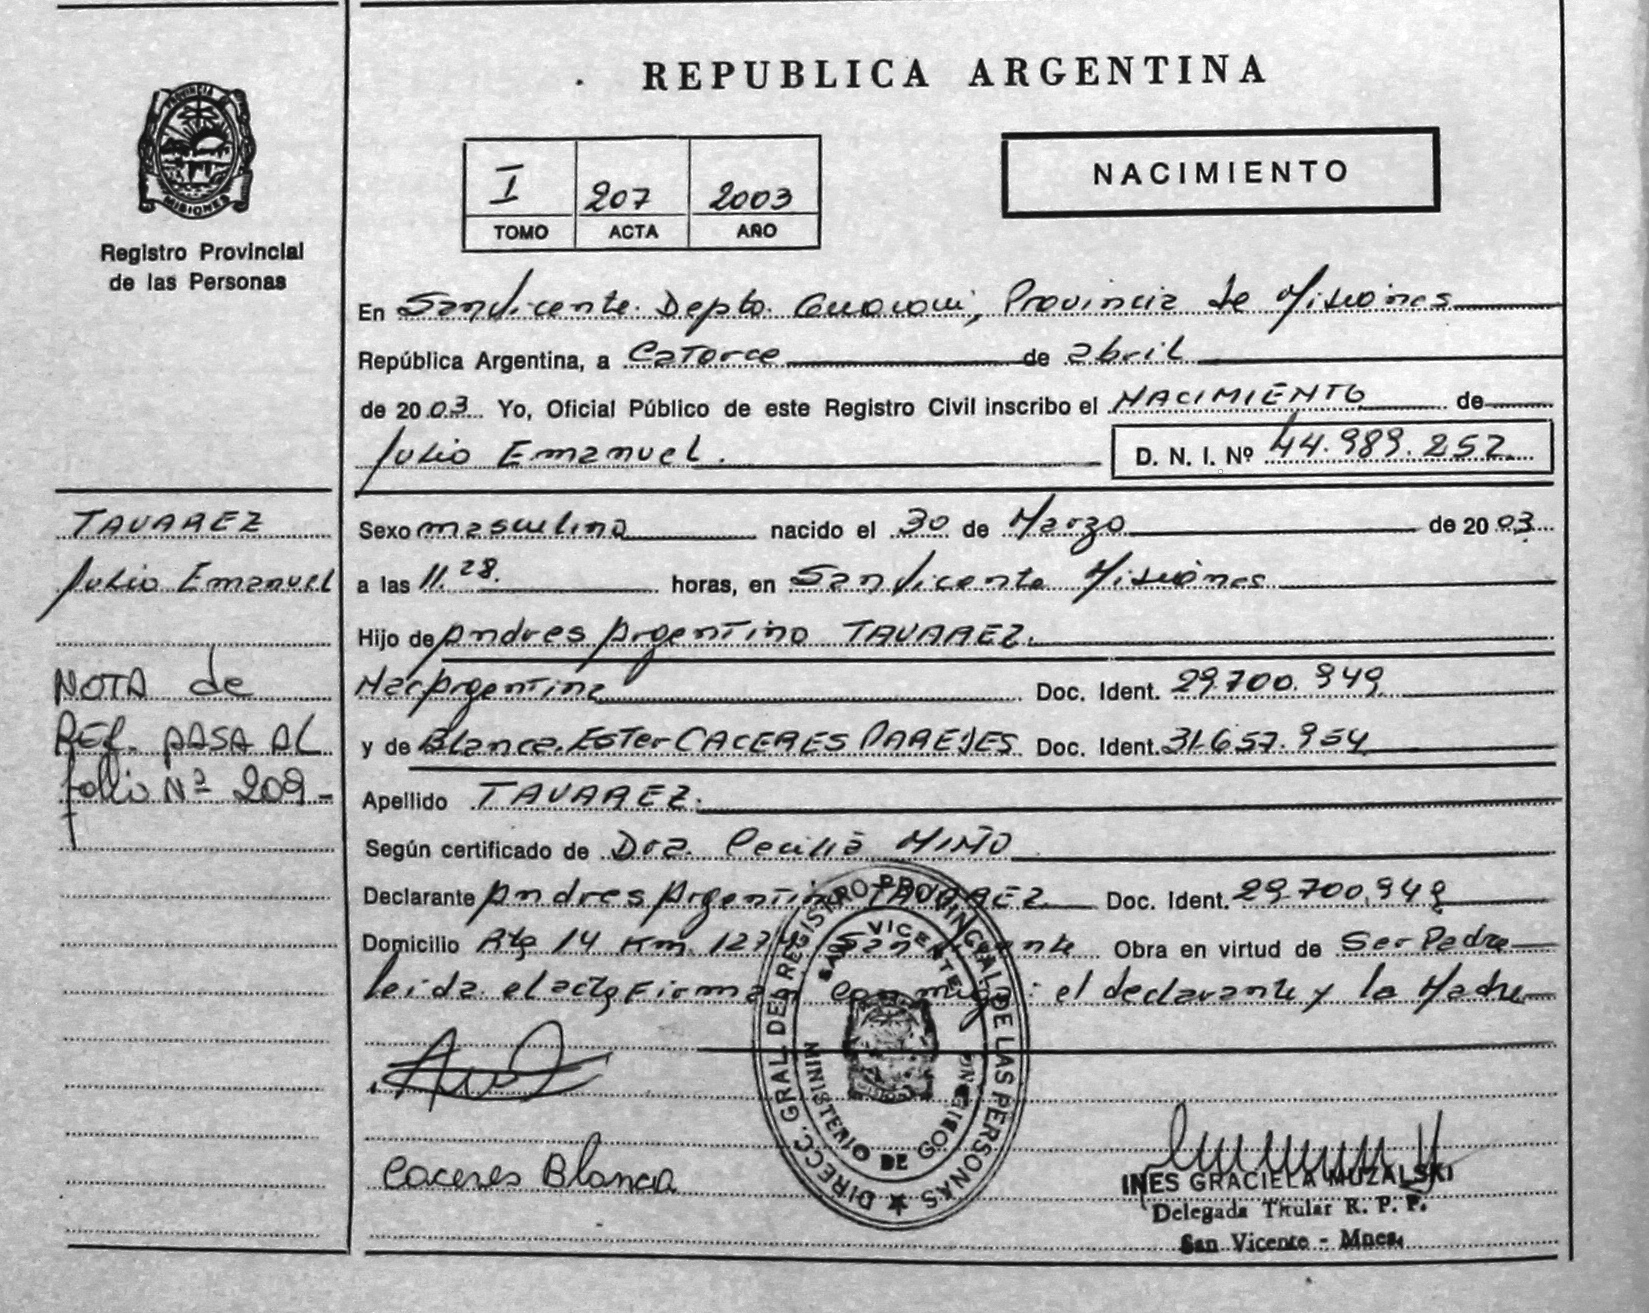 REPUBLICA ARGENTINA
PROVINCIA DE
MISIONES
Registro Provincial
de las Personas
I 207 2003
TOMO ACTA AÑO
NACIMIENTO
En San Vicente. Depto. Guarani, Provincia de Misiones
República Argentina, a Catorce de abril
de 2003 Yo, Oficial Público de este Registro Civil inscribo el NACIMIENTO de
Julio Emanuel. D. N. I. Nº 44.989.252
TAVAREZ
Julio Emanuel
NOTA de
REF. PASA AL
folio Nº 209-
Sexo masculino nacido el 30 de Marzo de 2003
a las 11.28. horas, en San Vicente Misiones
Hijo de Andres Argentino TAVAREZ.
Nac Argentina Doc. Ident. 29.700.949
y de Blanca Ester CACERES PAREDES Doc. Ident. 31.657.954
Apellido TAVAREZ.
Según certificado de Dra. Cecilia MIÑO
Declarante Andres Argentino TAVAREZ Doc. Ident. 29.700.949
Domicilio Rta 14 Km. 1274 San Vicente Obra en virtud de Ser Padre
leida el acta Firman Conmigo: el declarante y la Madre
DIRECC. GRAL. DEL REGISTRO PROVINCIAL DE LAS PERSONAS
SAN VICENTE
MINISTERIO DE GOBIERNO
Caceres Blanca
INES GRACIELA MUZALSKI
Delegada Titular R. P. P.
San Vicente - Mnes.